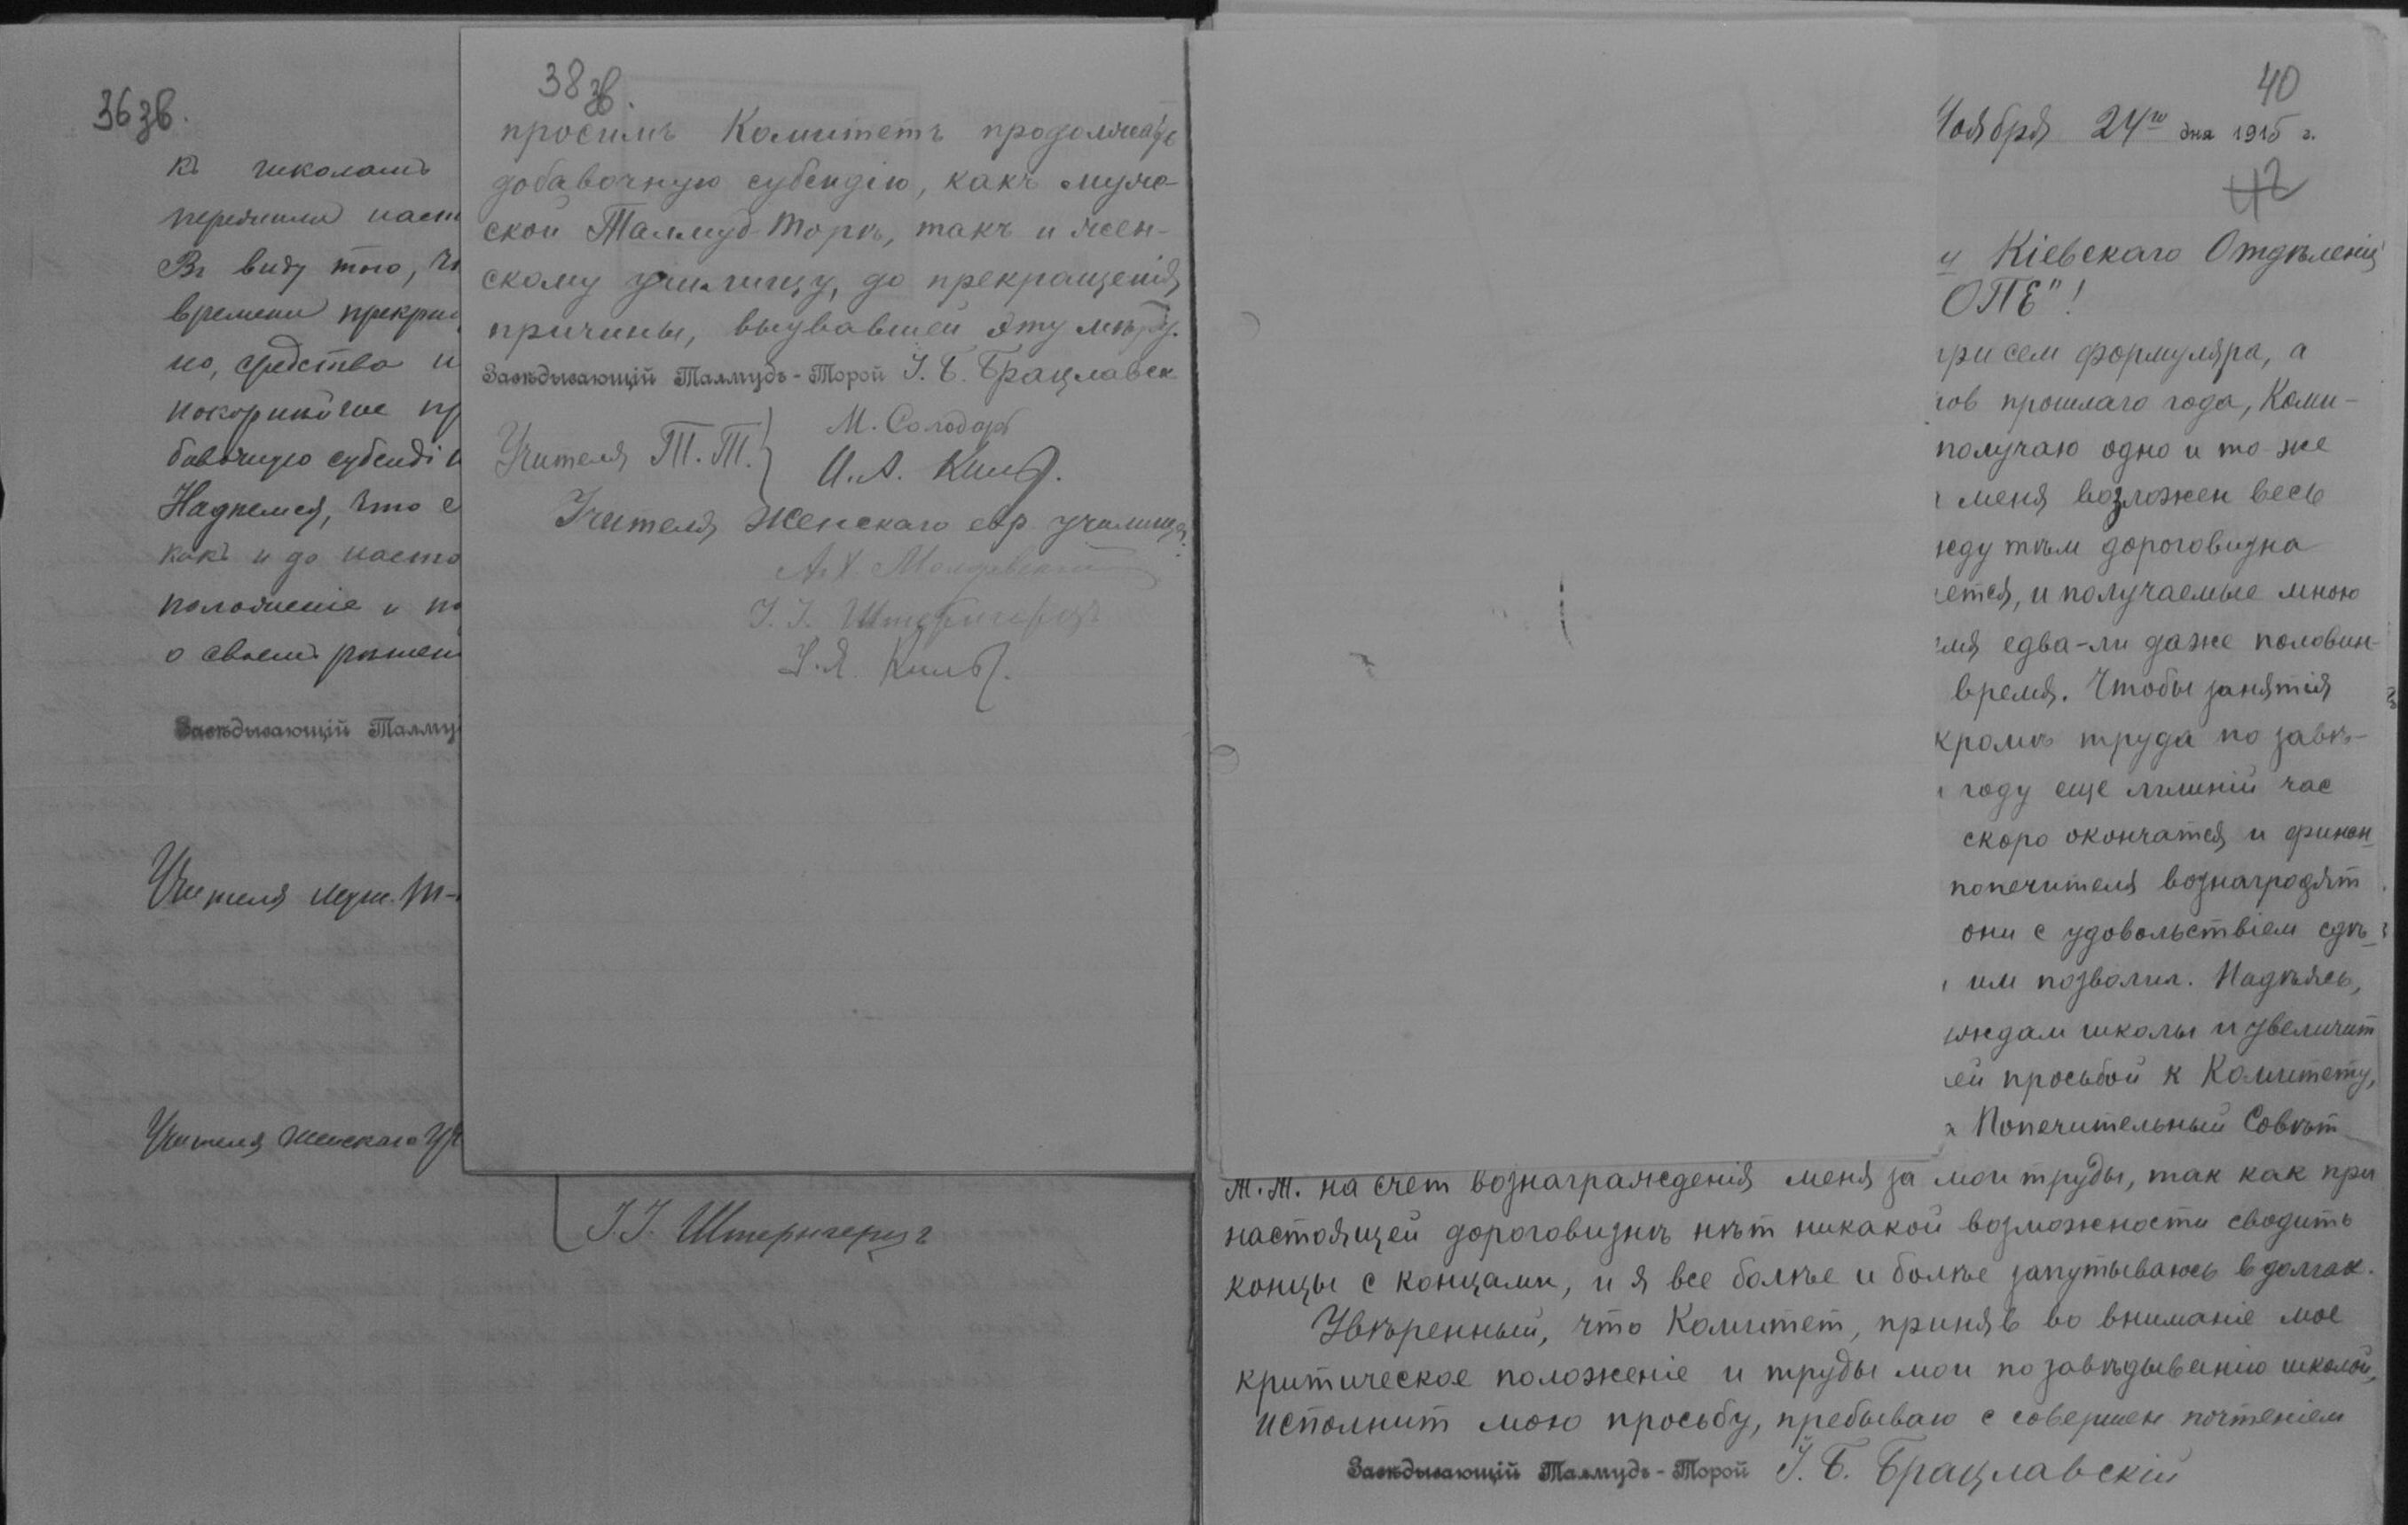 36 зв.
къ школамъ
Въ виду того,
времени
но, средства и
бавочную субсиді
Надѣемся, что с
какъ и до насто
положеніе и по
о своемъ рѣшен
Завѣдывающій Талму
Учителя муж. Т-
Учителя Женскаго Уч
38 зв.
просимъ Комитетъ продолжать
добавочную субсидію, какъ муж-
ской Талмуд-Торѣ, такъ и жен-
скому училищу, до прекращенія
причины, вызвавшей эту мѣру.
Завѣдывающій Талмудъ-Торой І. Б. Брацлавск
Учителя Т.Т. } М. Солодарь
И. А. Киль
Учителя Женскаго евр. училища:
А. Х. Молдавскій
І. І. Штернгерцъ
І. Я. Киль
І. І. Штернгерцъ
40
Ноября 24го дня 1915 г.
42
и Кіевскаго Отдѣленія
ОПЕ"!
при сем формуляра, а
ов прошлаго года, Коми-
получаю одно и то-же
меня возложен весь
жду тѣм дороговизна
ется, и получаемые мною
мя едва-ли даже половин-
время. Чтобы занятія
кромѣ труда по завѣ-
году еще лишній час
скоро окончатся и финан
попечителя вознаградят
они с удовольствіем сдѣ-
им позволил. Надѣясь,
ждам школы и увеличит
ей просьбой к Комитету,
Попечительный Совѣт
Т.Т. на счет вознагражденія меня за мои труды, так как при
настоящей дороговизнѣ нѣт никакой возможности сводить
концы с концами, и я все болѣе и болѣе запутываюсь в долгах.
Увѣренный, что Комитет, приняв во вниманіе мое
критическое положеніе и труды мои по завѣдыванію школой,
исполнит мою просьбу, пребываю с совершен почтеніем
Завѣдывающій Талмудъ-Торой І. Б. Брацлавскій